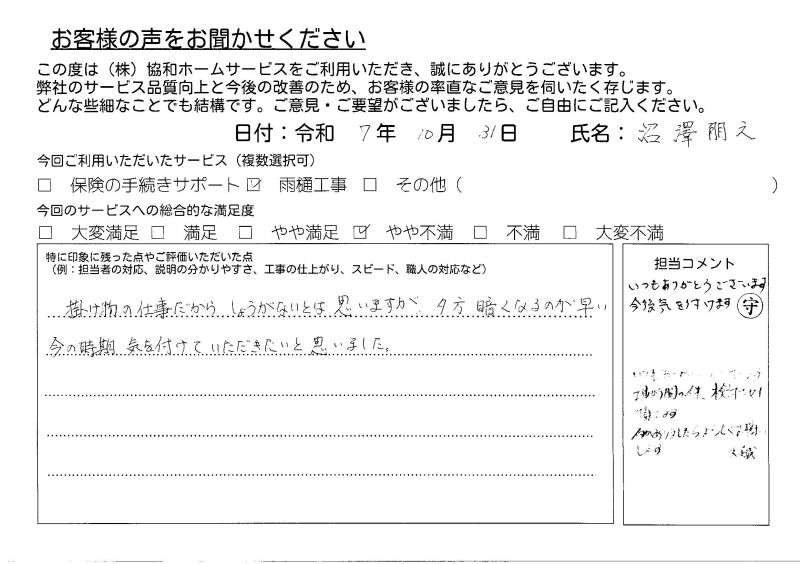 お客様の声をお聞かせください
この度は（株）協和ホームサービスをご利用いただき、誠にありがとうございます。
弊社のサービス品質向上と今後の改善のため、お客様の率直なご意見を伺いたく存じます。
どんな些細なことでも結構です。ご意見・ご要望がございましたら、ご自由にご記入ください。
日付：令和 7年 10月 31日 氏名：沼澤朋之
今回ご利用いただいたサービス（複数選択可）
□ 保険の手続きサポート ☑ 雨樋工事 □ その他（ ）
今回のサービスへの総合的な満足度
□ 大変満足 □ 満足 □ やや満足 ☑ やや不満 □ 不満 □ 大変不満
特に印象に残った点やご評価いただいた点
（例：担当者の対応、説明の分かりやすさ、工事の仕上がり、スピード、職人の対応など）
掛け物の仕事だから しょうがないとは 思いますが 夕方 暗くなるのが早い
今の時期 気を付けていただきたいと思いました。
担当コメント
いつもありがとうございます
今後気をつけます 守
頂きます
します